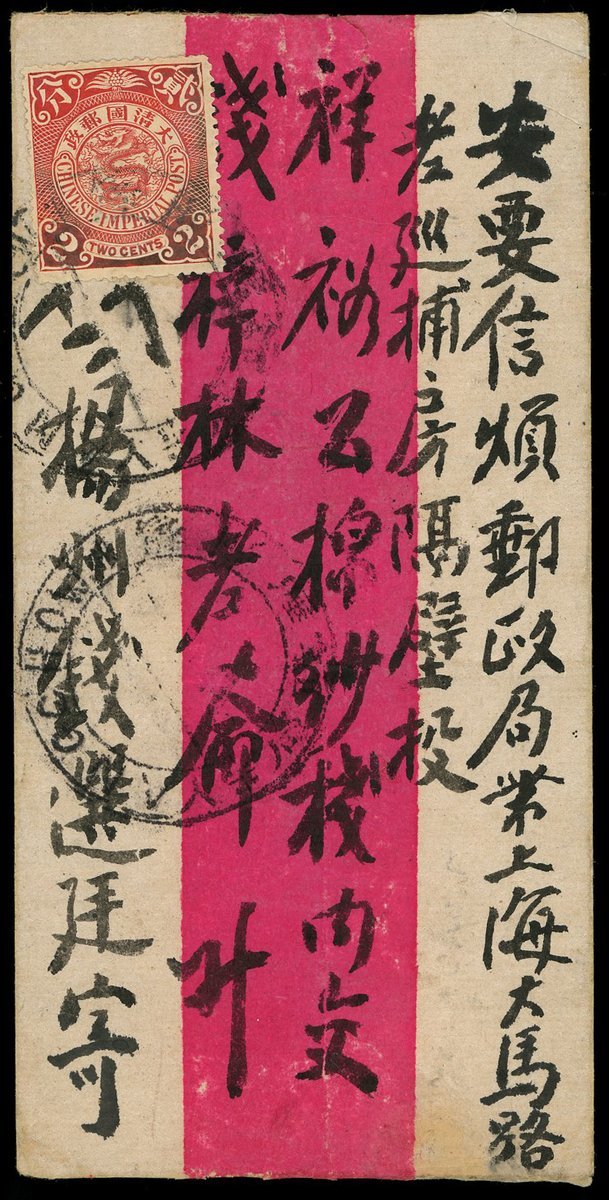 安要信煩郵政局帶上海大馬路
老巡捕房隔壁投
祥裕公棉紗棧內交
錢梓林老爺升
楊州錢選廷寄
貳分
大清國郵政
CHINESE IMPERIAL POST
2 TWO CENTS 2